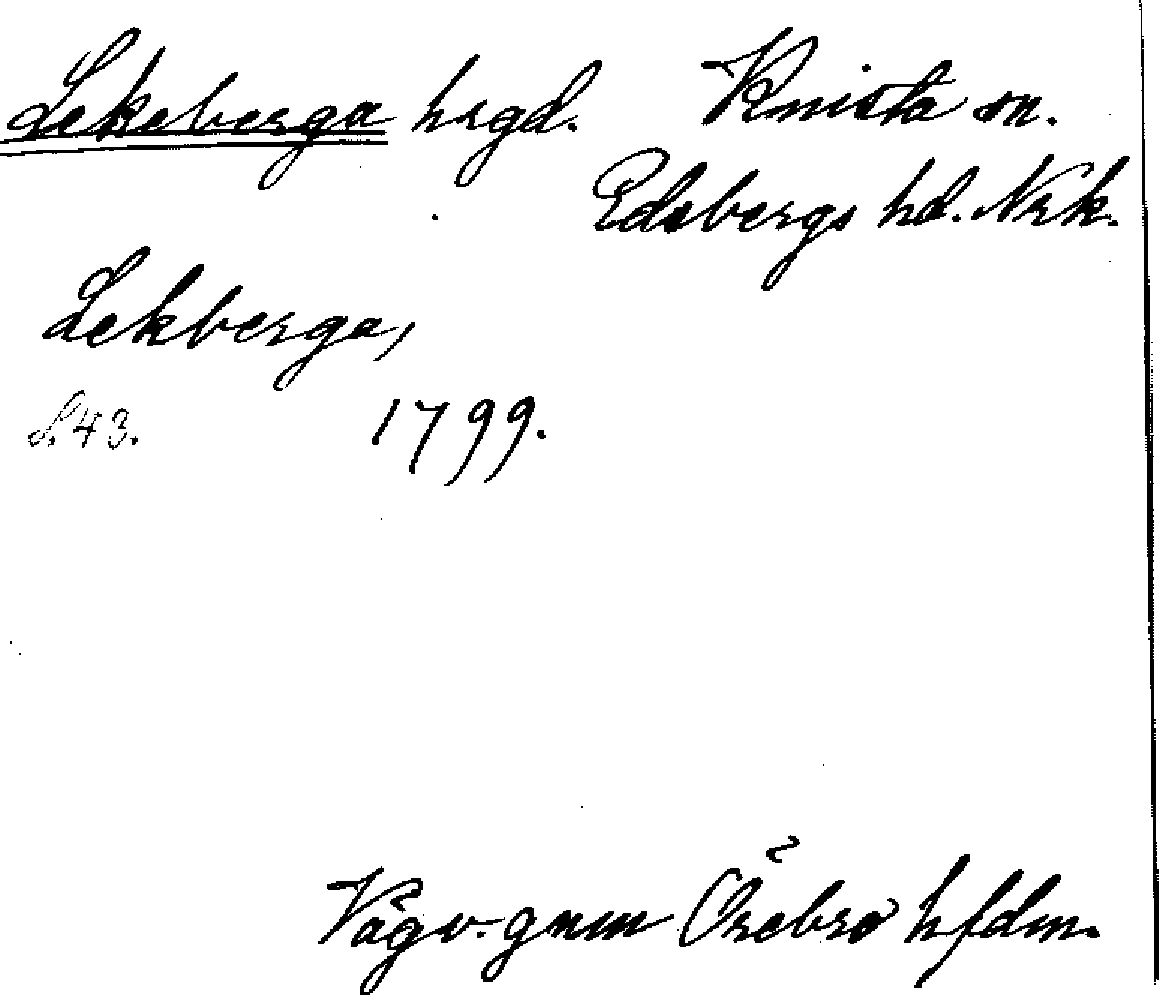 Lekeberga hrgd. Knista sn.
Edsbergs hd. Nrk.
Lekberga,
S. 43. 1799.
Vägv. gnm Örebro hfdm.